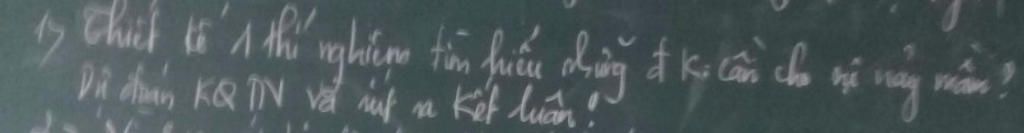 1, Thiết kế 1 thí nghiệm tìm hiểu những đk: cần cho sự nảy mầm?
Dự đoán KQ TN và rút ra kết luận?